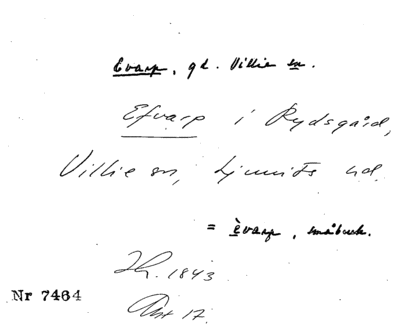 Evarp, gd. Villie sn.
Efvarp i Rydsgård,
Villie sn, Ljunits hd.
= èvarp, småbruk.
1843.
Nr 7464
17.